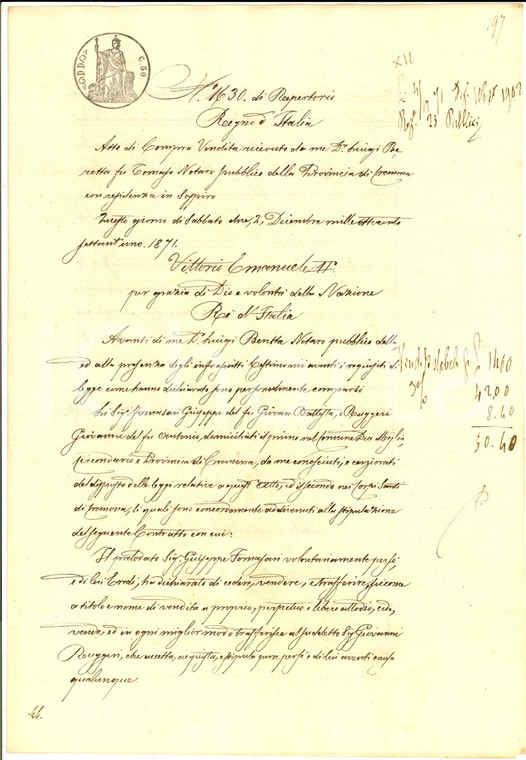 197
C. 50
XII
N.° 1630. di Repertorio
Regno d'Italia
Atto di Compra Vendita ricevuto da me Dr. Luigi Be
retta fu Tomaso Notaro pubblico della Provincia di Cremona
con residenza in
Questo giorno di Sabbato due, 2, Dicembre mille ottocento
settant'uno. 1871.
Vittorio Emanuele II°
per grazia di Dio e volontà della Nazione
Re d'Italia
Avanti di me Dr. Luigi Beretta Notaro pubblico
ed alla presenza degli infrascritti Testimoni aventi i requisiti di
legge come hanno dichiarato sono personalmente comparsi
Li Sigi. Giuseppe del fu Giovan Battista, e Ruggeri
Giovanni del fu Antonio, domiciliati il primo nel
Circondario e Provincia di Cremona, da me conosciuti, e
del disposto delle leggi relative a questi Atti, ed il secondo nei Corpi Santi
di Cremona, li quali sono concordemente addivenuti alla stipulazione
del seguente Contratto con cui:
Il prelodato Sig. Giuseppe volontariamente per sé
e di lui Eredi, ha dichiarato di cedere, vendere, e trasferire, siccome
a titolo e nome di vendita a proprio, perpetuo e libero allodio, cede,
vende, ed in ogni miglior modo trasferisce al suddetto Sig. Giovanni
Ruggeri, che accetta, acquista, e stipula pure per sé e di lui aventi causa
qualunque.
1400
4200
8.40
50.40